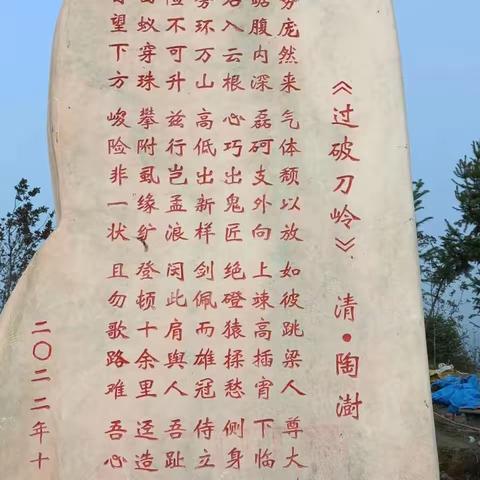 《过破刀岭》 清·陶澍
庞然来 气体颓以放 如彼跳梁人 尊大
腹内深 磊砢支外向 上竦高插宵 下临
入云根 心巧出鬼匠 绝磴猿揉愁 侧身
环万山 高低出新样 剑佩而雄冠 侍立
不可升 兹行岂孟浪 闵此肩與人 吾趾
蚁穿珠 攀附虱缘纩 登顿十余里 迳造
望下方 峻险非一状 且勿歌路难 吾心
二〇二二年十